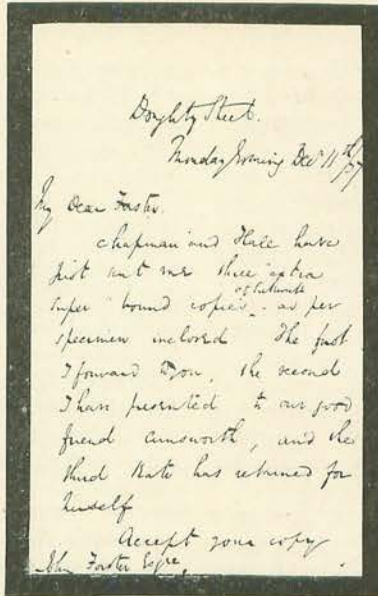 Doughty Street.
Monday Morning Decr 11th /37
My Dear Forster.
Chapman and Hall have
just sent me three extra
of Pickwick
super bound copies - as per
specimen inclosed The first
I forward to you, the second
I have presented to our good
friend Ainsworth, and the
third Kate has retained for
herself
Accept your copy
John Forster Esqre.